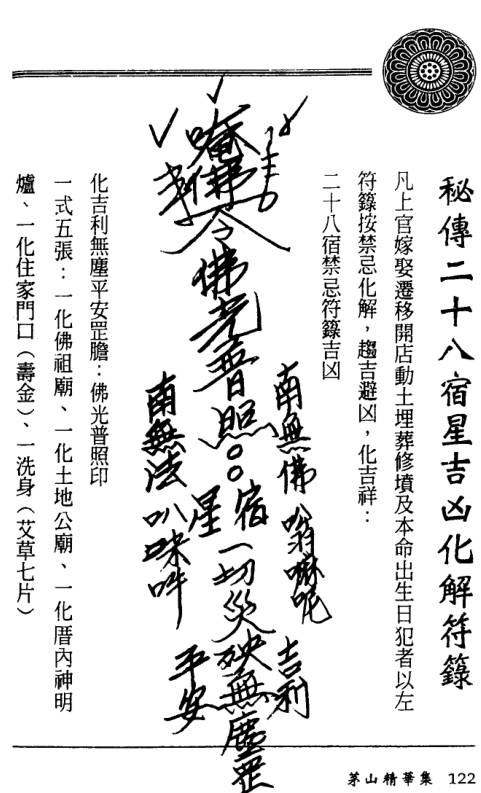 秘傳二十八宿星吉凶化解符籙
凡上官嫁娶遷移開店動土埋葬修墳及本命出生日犯者以左
符籙按禁忌化解，趨吉避凶，化吉祥：
二十八宿禁忌符籙吉凶
唵佛令佛光普照
南無佛
吉利
宿星一切災殃無塵罡
南無法
平安
化吉利無塵平安罡膽：佛光普照印
一式五張：一化佛祖廟、一化土地公廟、一化厝內神明
爐、一化住家門口（壽金）、一洗身（艾草七片）
茅山精華集 122